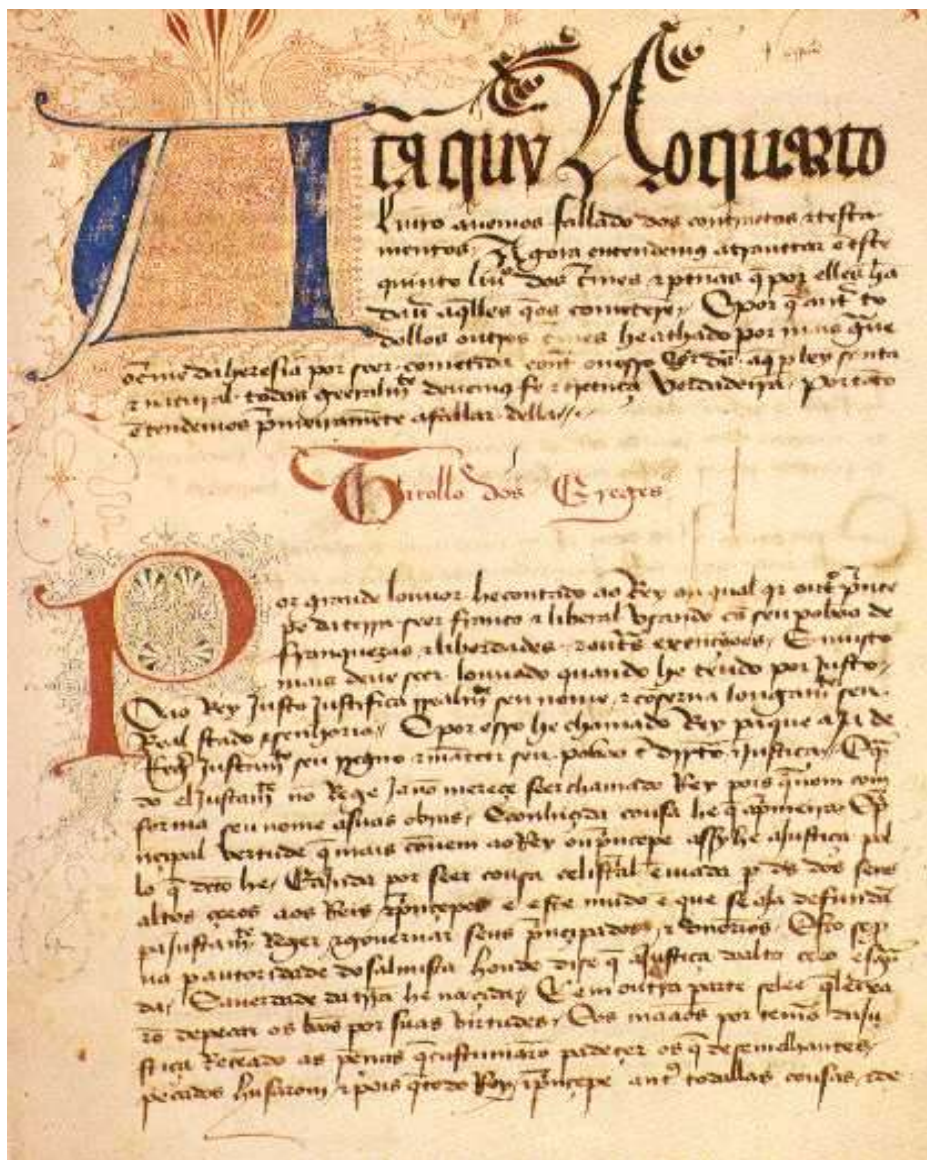 Ata quy No quarto
Livro avemos fallado dos contractos e testa
mentos. Agora entendemos a trauttar e este
quinto liu.º dos c̃mes e penas q̃ por elles ha
dau aq̃lles q̃ os cometerẽ. E por q̃ ant̃ to
dollos outros c̃mes he achado por mais g̃ue
o c̃me da heresia por seer cometida cont̃ o nosso S̃r ds̃ aq̃ p ley scrita
e natural todos geeralm̃ devemos fe e creẽça verdadeira. Portãto
ẽtendemos p̃meiramẽte a fallar della
Titollo dos Ereges
Por grande louvor he contado ao Rey ou qual q̃r out̃o p̃nce
pe da terra seer franco e liberal usando cõ seu poboo de
franquezas e liberdades e outs̃ exençoões. E muito
mais deve seer louvado quando he teudo por justo
O Rey justo justifica realm̃ seu nome e cõserva longam̃ seu
Real stado e senhorio. E por esso he chamado Rey porque aja de
Reg̃ justam̃ seu regno e mãteer seu poboo ẽ dirt̃o e justiça. E q̃n
do el justam̃ no Rege ja nõ mereçe seer chamado Rey pois q̃ nom com
forma seu nome a suas obras. E conluçda cousa he q̃ a p̃meira e p̃
ncipal vertude q̃ mais cõvem ao Rey ou p̃ncepe assy he a justiça pel
lo q̃ dicto he. E ajnda por seer cousa celistẽal ẽviada p ds̃ dos seus
altos çeeos aos Reis e p̃nçepes ẽ este mũdo ẽ que se aja defundã
pa justam̃ Reger e governar seus p̃nçipados e senorios. Esto se p
va p autoridade do salmista honde disse q̃ a justiça do alto ceeo esg̃u
da. E a verdade da terra he naçida. E em outra parte se lee q̃ leixa
rõ de pecar os bõos por suas virtudes. E os maaos por temor da ju
stiça Receado as penas q̃ custumarõ padeçer os q̃ de semelhantes
pecados husarom e pois q̃ todo Rey e p̃nçepe ant̃ todallas cousas de